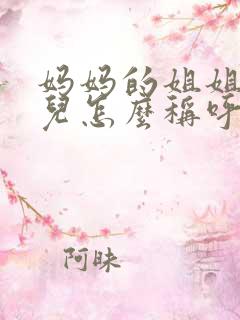 妈妈的姐姐
兒怎麼稱呼
阿昧